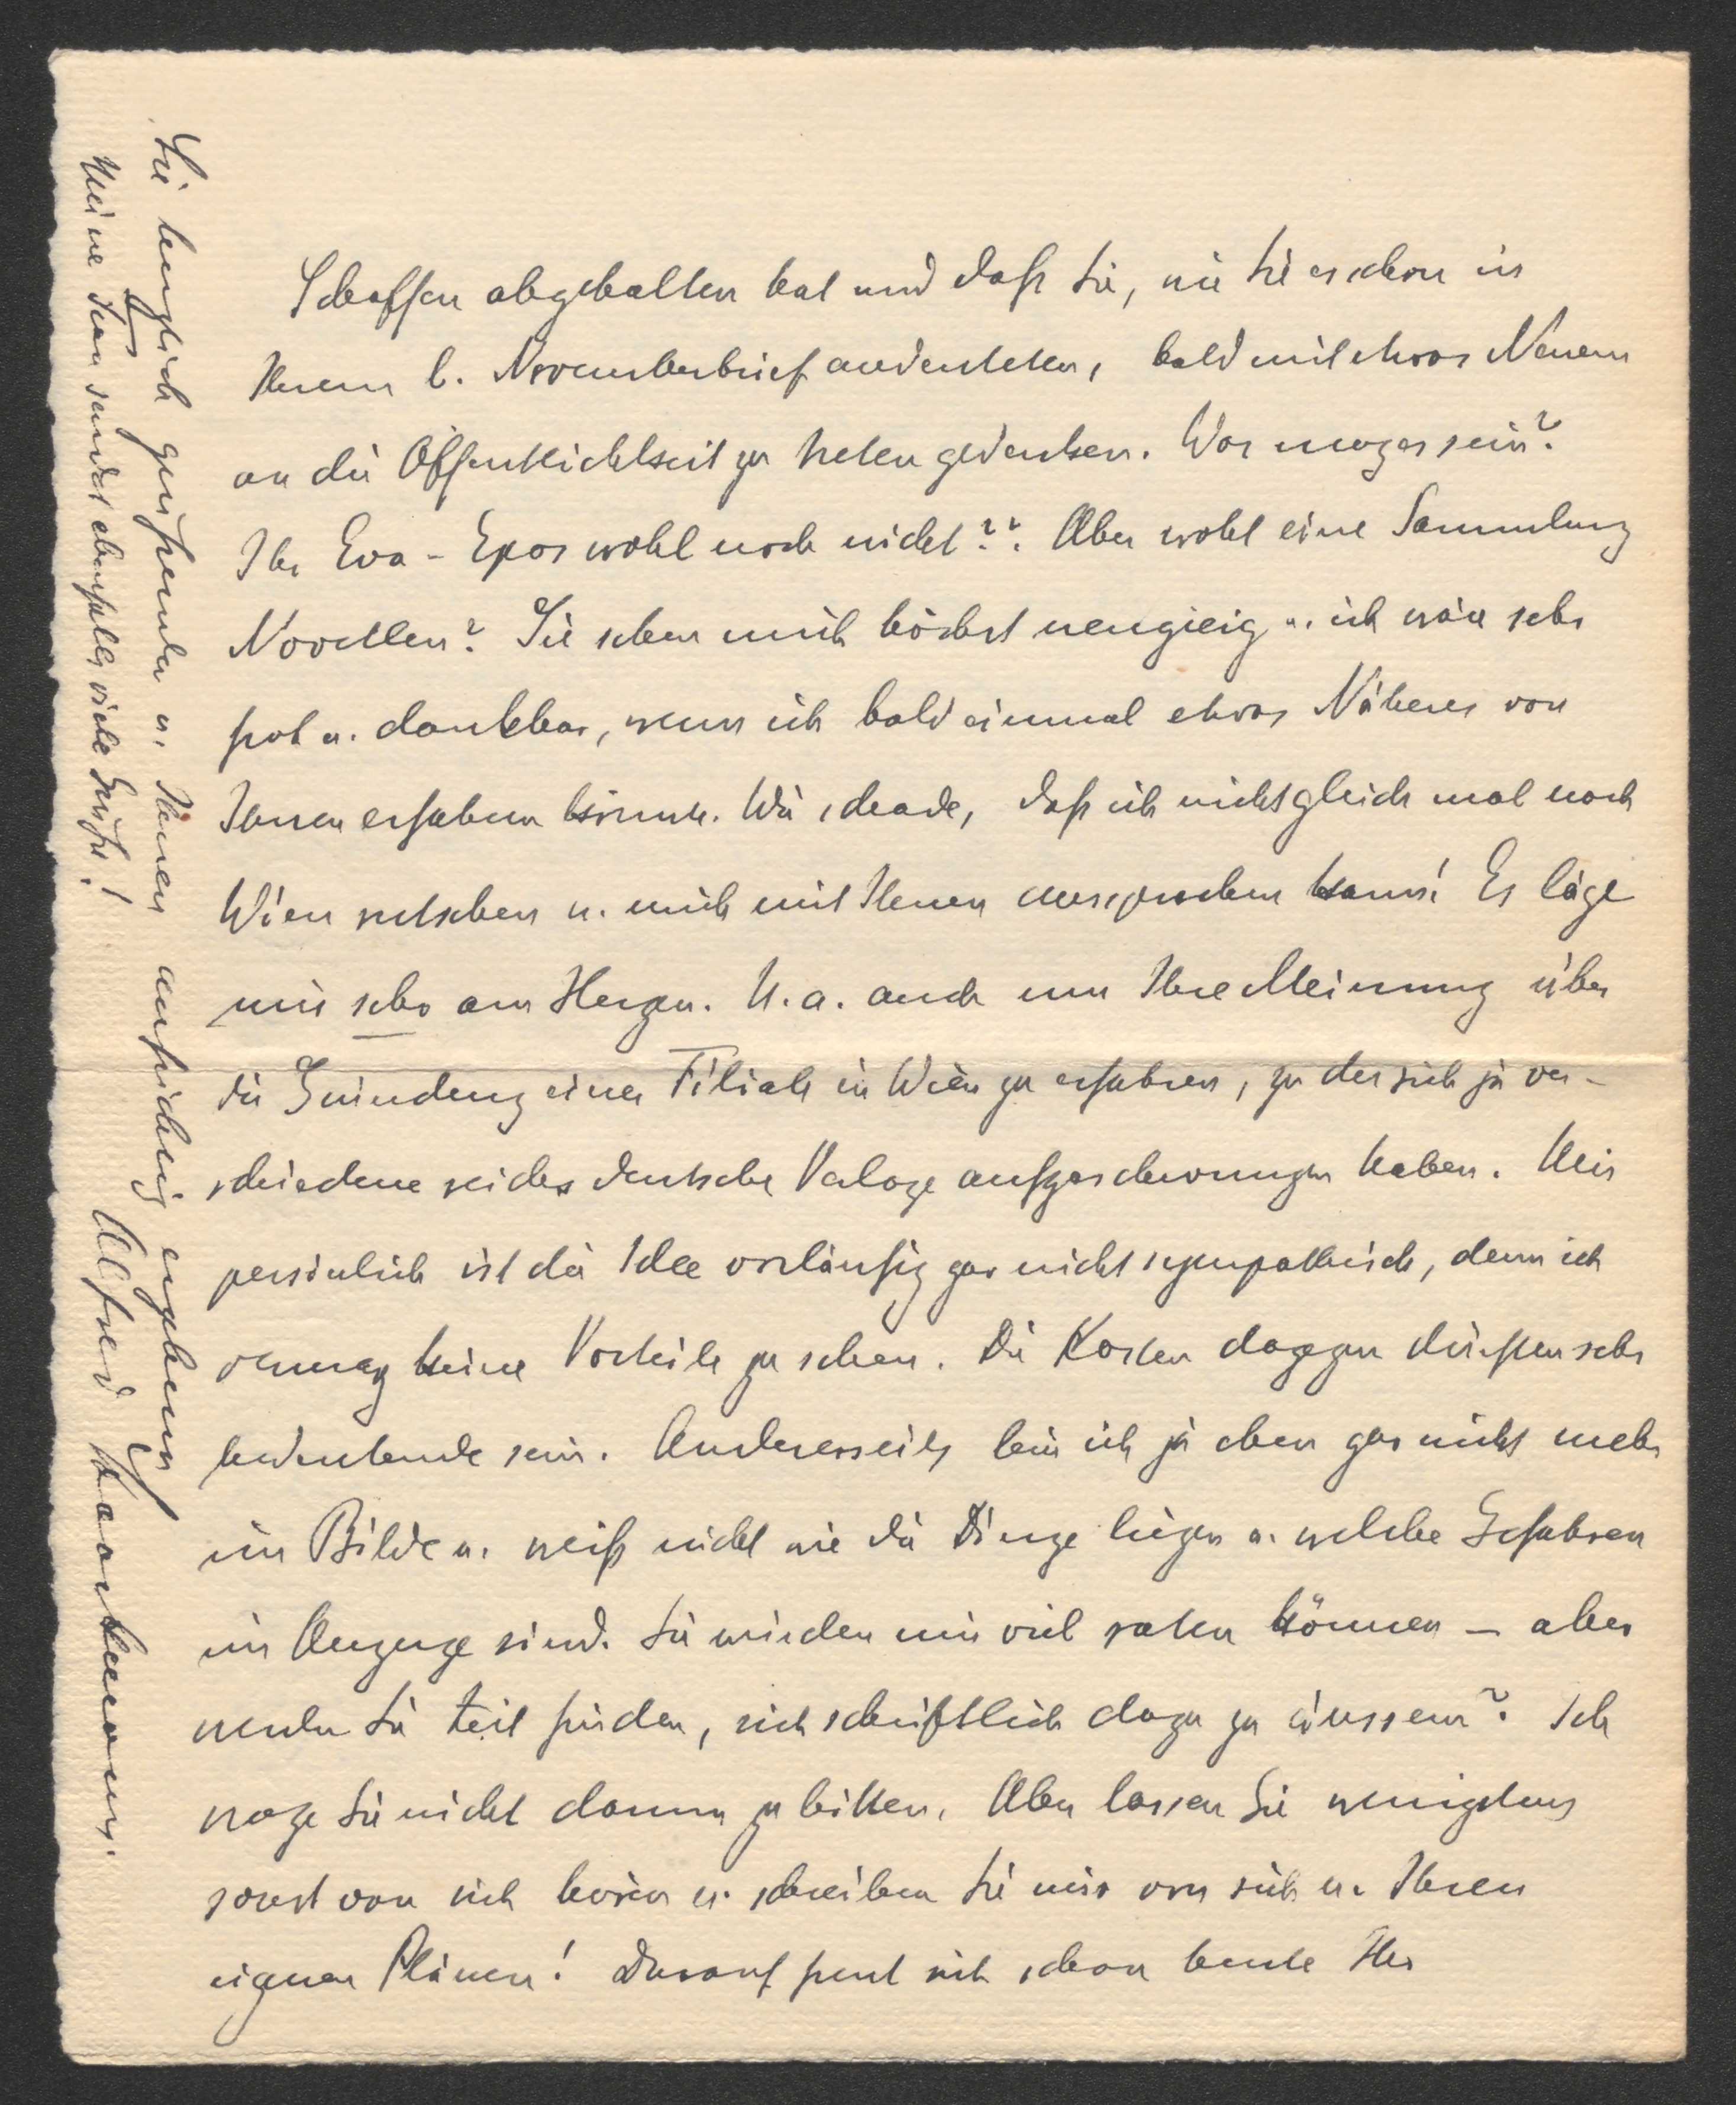 Schaffen abgehalten hat und daß Sie, wie Sie es schon in
Ihrem l. Novemberbrief andeuteten, bald mit etwas Neuem
an die Öffentlichkeit zu treten gedenken. Was mag es sein?
Ihr Eva-Epos wohl noch nicht?? Aber wohl eine Sammlung
Novellen? Sie sehen mich höchst neugierig u. ich wäre sehr
froh u. dankbar, wenn ich bald einmal etwas Näheres von
Ihnen erfahren könnte. Wie schade, daß ich nicht gleich mal nach
Wien rutschen u. mich mit Ihnen aussprechen kann! Es läge
mir sehr am Herzen. U. a. auch um Ihre Meinung über
die Gründung einer Filiale in Wien zu erfahren, zu der sich ja ver-
schiedene reichsdeutsche Verlage aufgeschwungen haben. Mir
persönlich ist die Idee vorläufig gar nicht sympathisch, denn ich
vermag keine Vorteile zu sehen. Die Kosten dagegen dürften sehr
bedeutende sein. Andererseits bin ich ja eben gar nicht mehr
im Bilde u. weiß nicht wie die Dinge liegen u. welche Gefahren
im Anzuge sind. Sie würden mir viel raten können – aber
werden Sie Zeit finden, sich schriftlich dazu zu äussern? Ich
wage Sie nicht darum zu bitten. Aber lassen Sie wenigstens
sonst von sich hören u. schreiben Sie mir von sich u. Ihren
eignen Plänen! Darauf freut sich schon heute Ihr
Sie herzlich grüßender u. Ihnen aufrichtig ergebener
Alfred
Meine Frau sendet ebenfalls viele Grüße!